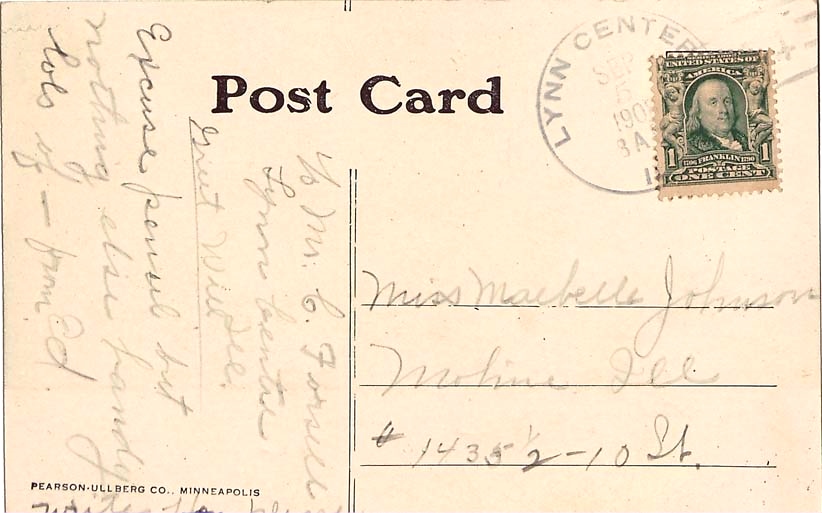 Post Card
LYNN CENTER
SEP
5
190
8 A
UNITED STATES OF
AMERICA
1 1706 FRANKLIN 1790 1
POSTAGE
ONE CENT
Miss Maebelle Johnson
Moline Ill
# 1435 1/2 - 10 St.
Excuse pencil but
nothing else handy
lots of — from Ed.
% Mr. C. Forsell
Lynn Center
Ill.
PEARSON-ULLBERG CO., MINNEAPOLIS